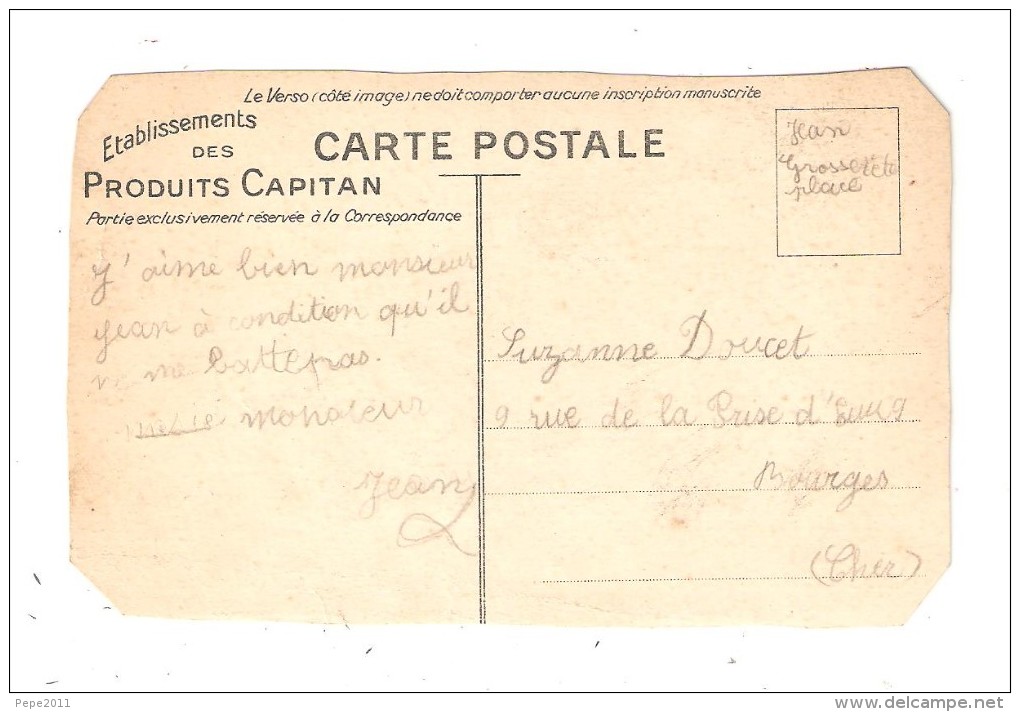 Le Verso (côté image) ne doit comporter aucune inscription manuscrite
Etablissements
DES
PRODUITS CAPITAN
CARTE POSTALE
Partie exclusivement réservée à la Correspondance
J'aime bien monsieur
Jean à condition qu'il
me batte pas.
monsieur
Jean
Jean
Grossetête
place
Suzanne Doucet
9 rue de la Prise d'Eau 9
Bourges
(Cher)
Pepe2011
www.delcampe.net